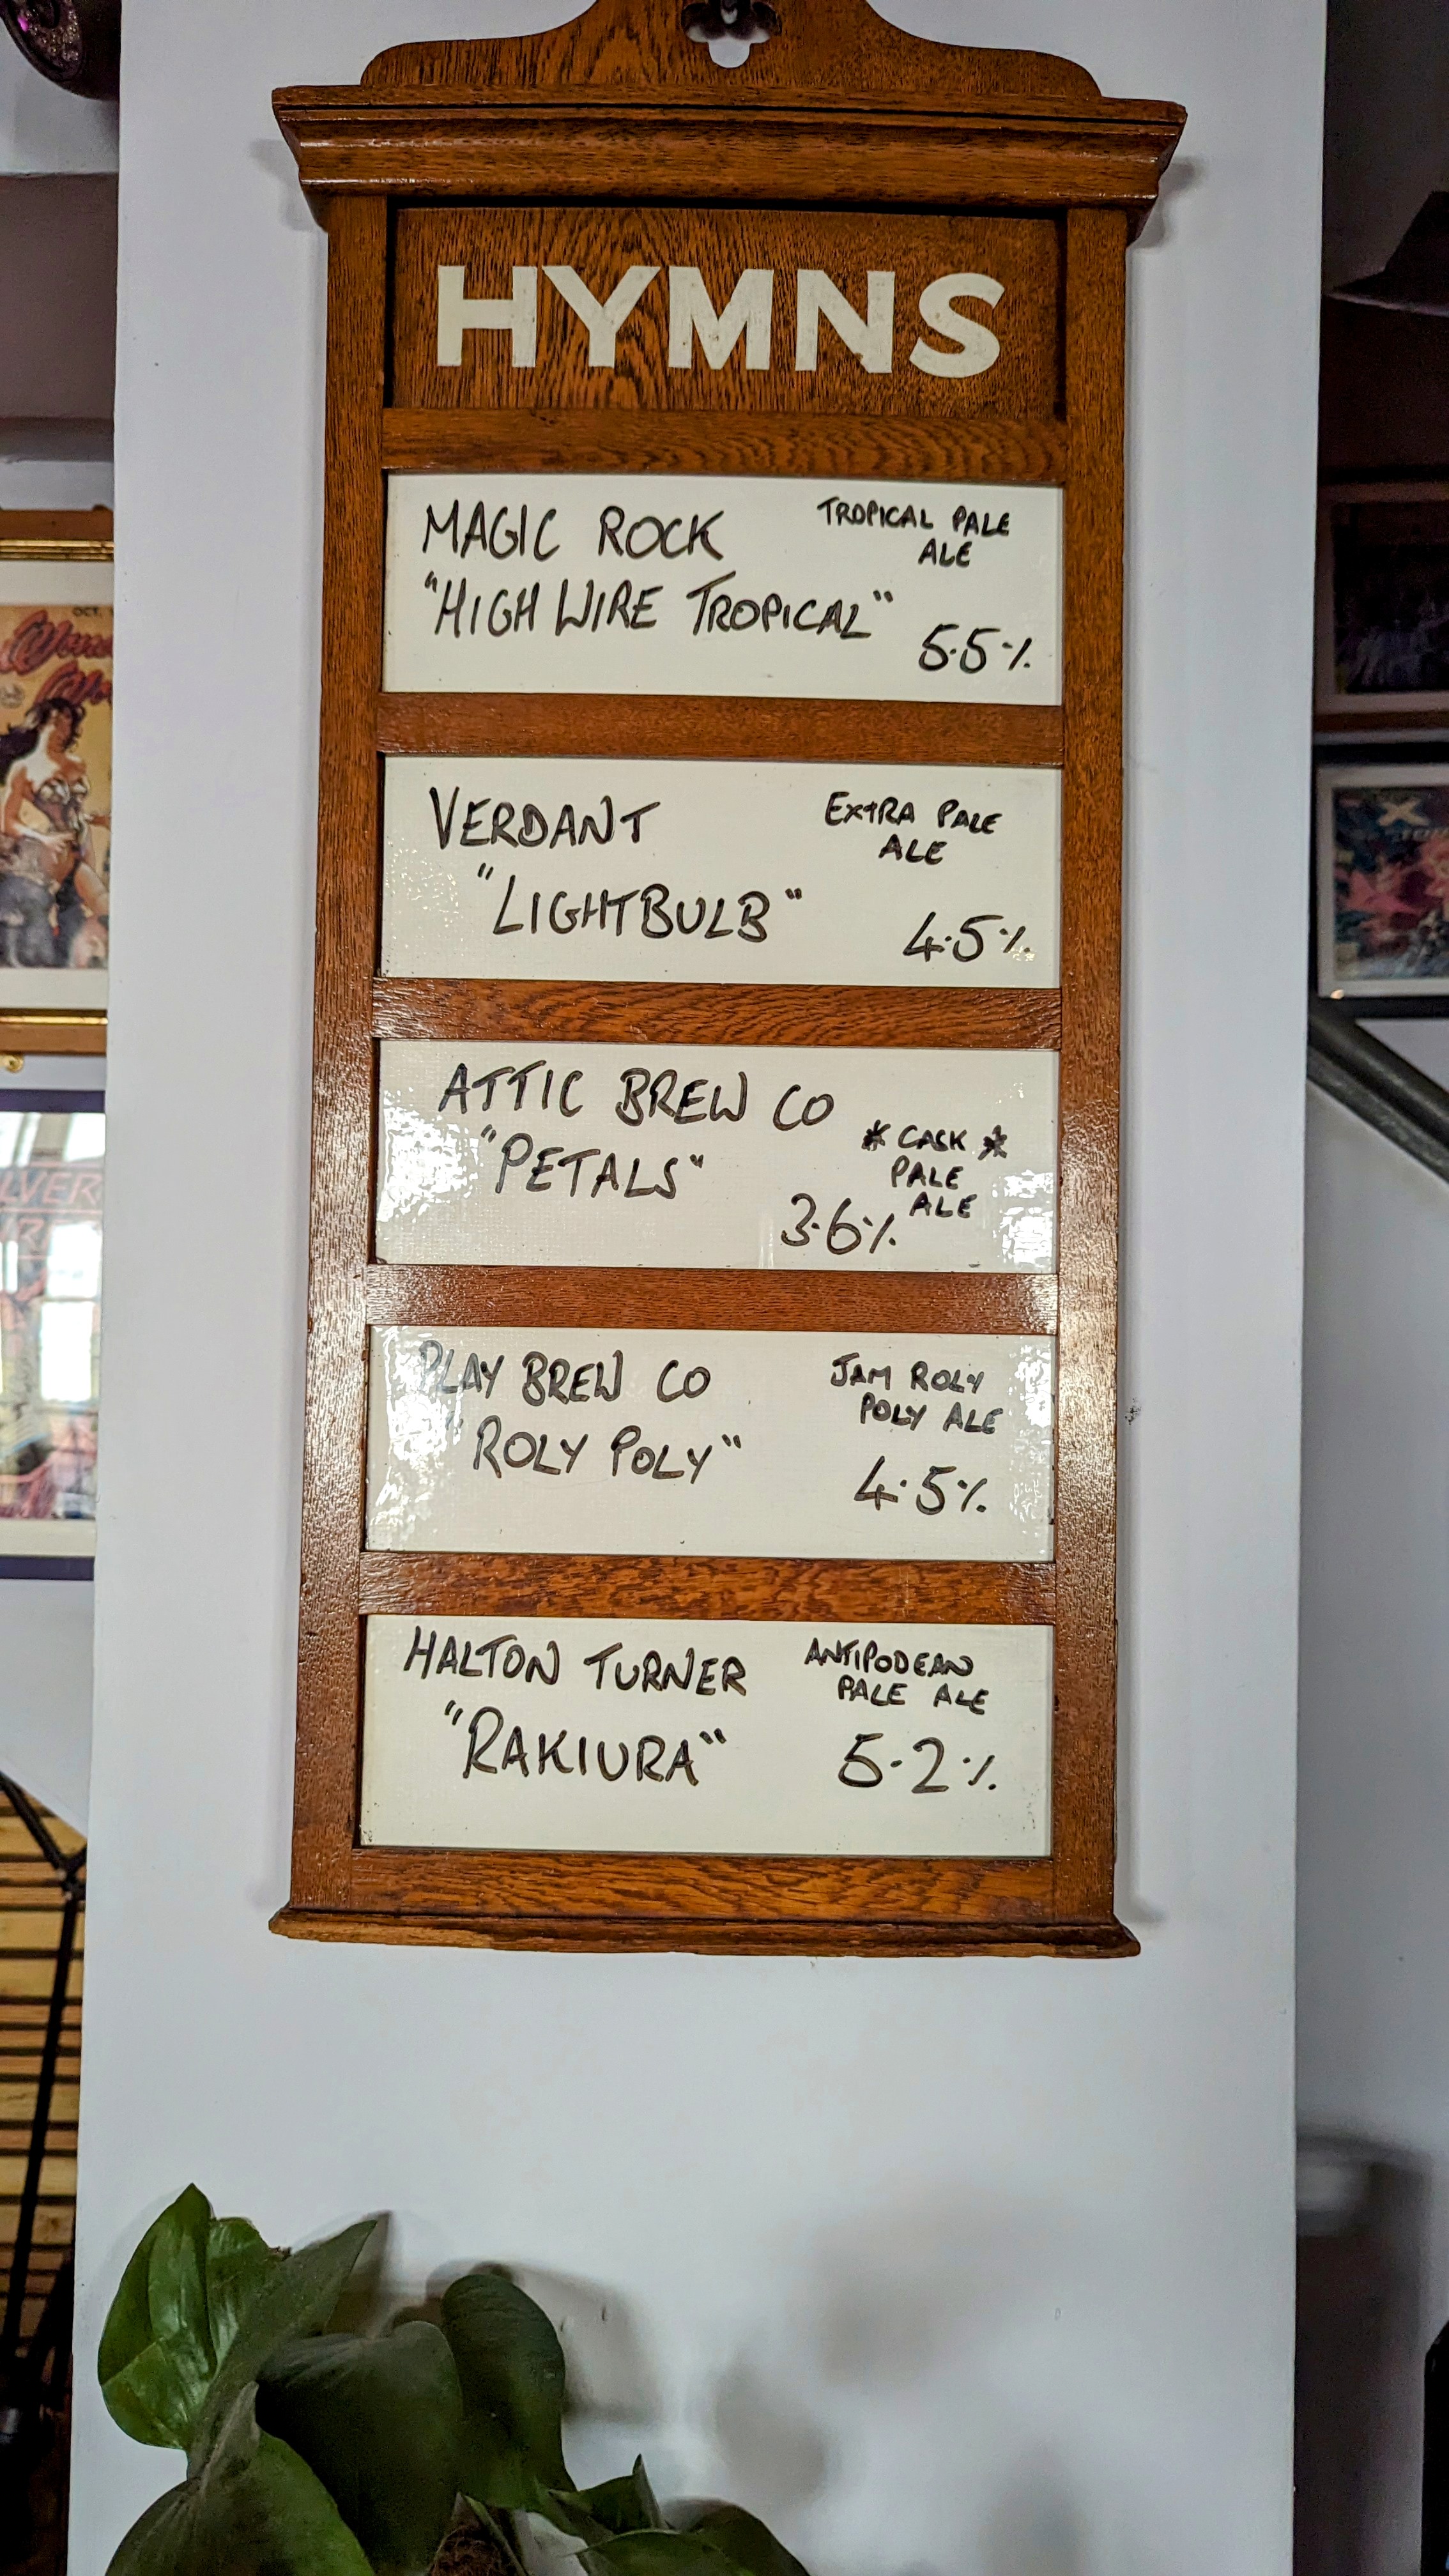 HYMNS
MAGIC ROCK
"HIGH WIRE TROPICAL"
TROPICAL PALE
ALE
5.5%
VERDANT
"LIGHTBULB"
EXTRA PALE
ALE
4.5%
ATTIC BREW CO
"PETALS"
* CASK *
PALE
ALE
3.6%
PLAY BREW CO
"ROLY POLY"
JAM ROLY
POLY ALE
4.5%
HALTON TURNER
"RAKIURA"
ANTIPODEAN
PALE ALE
5.2%
OCT.